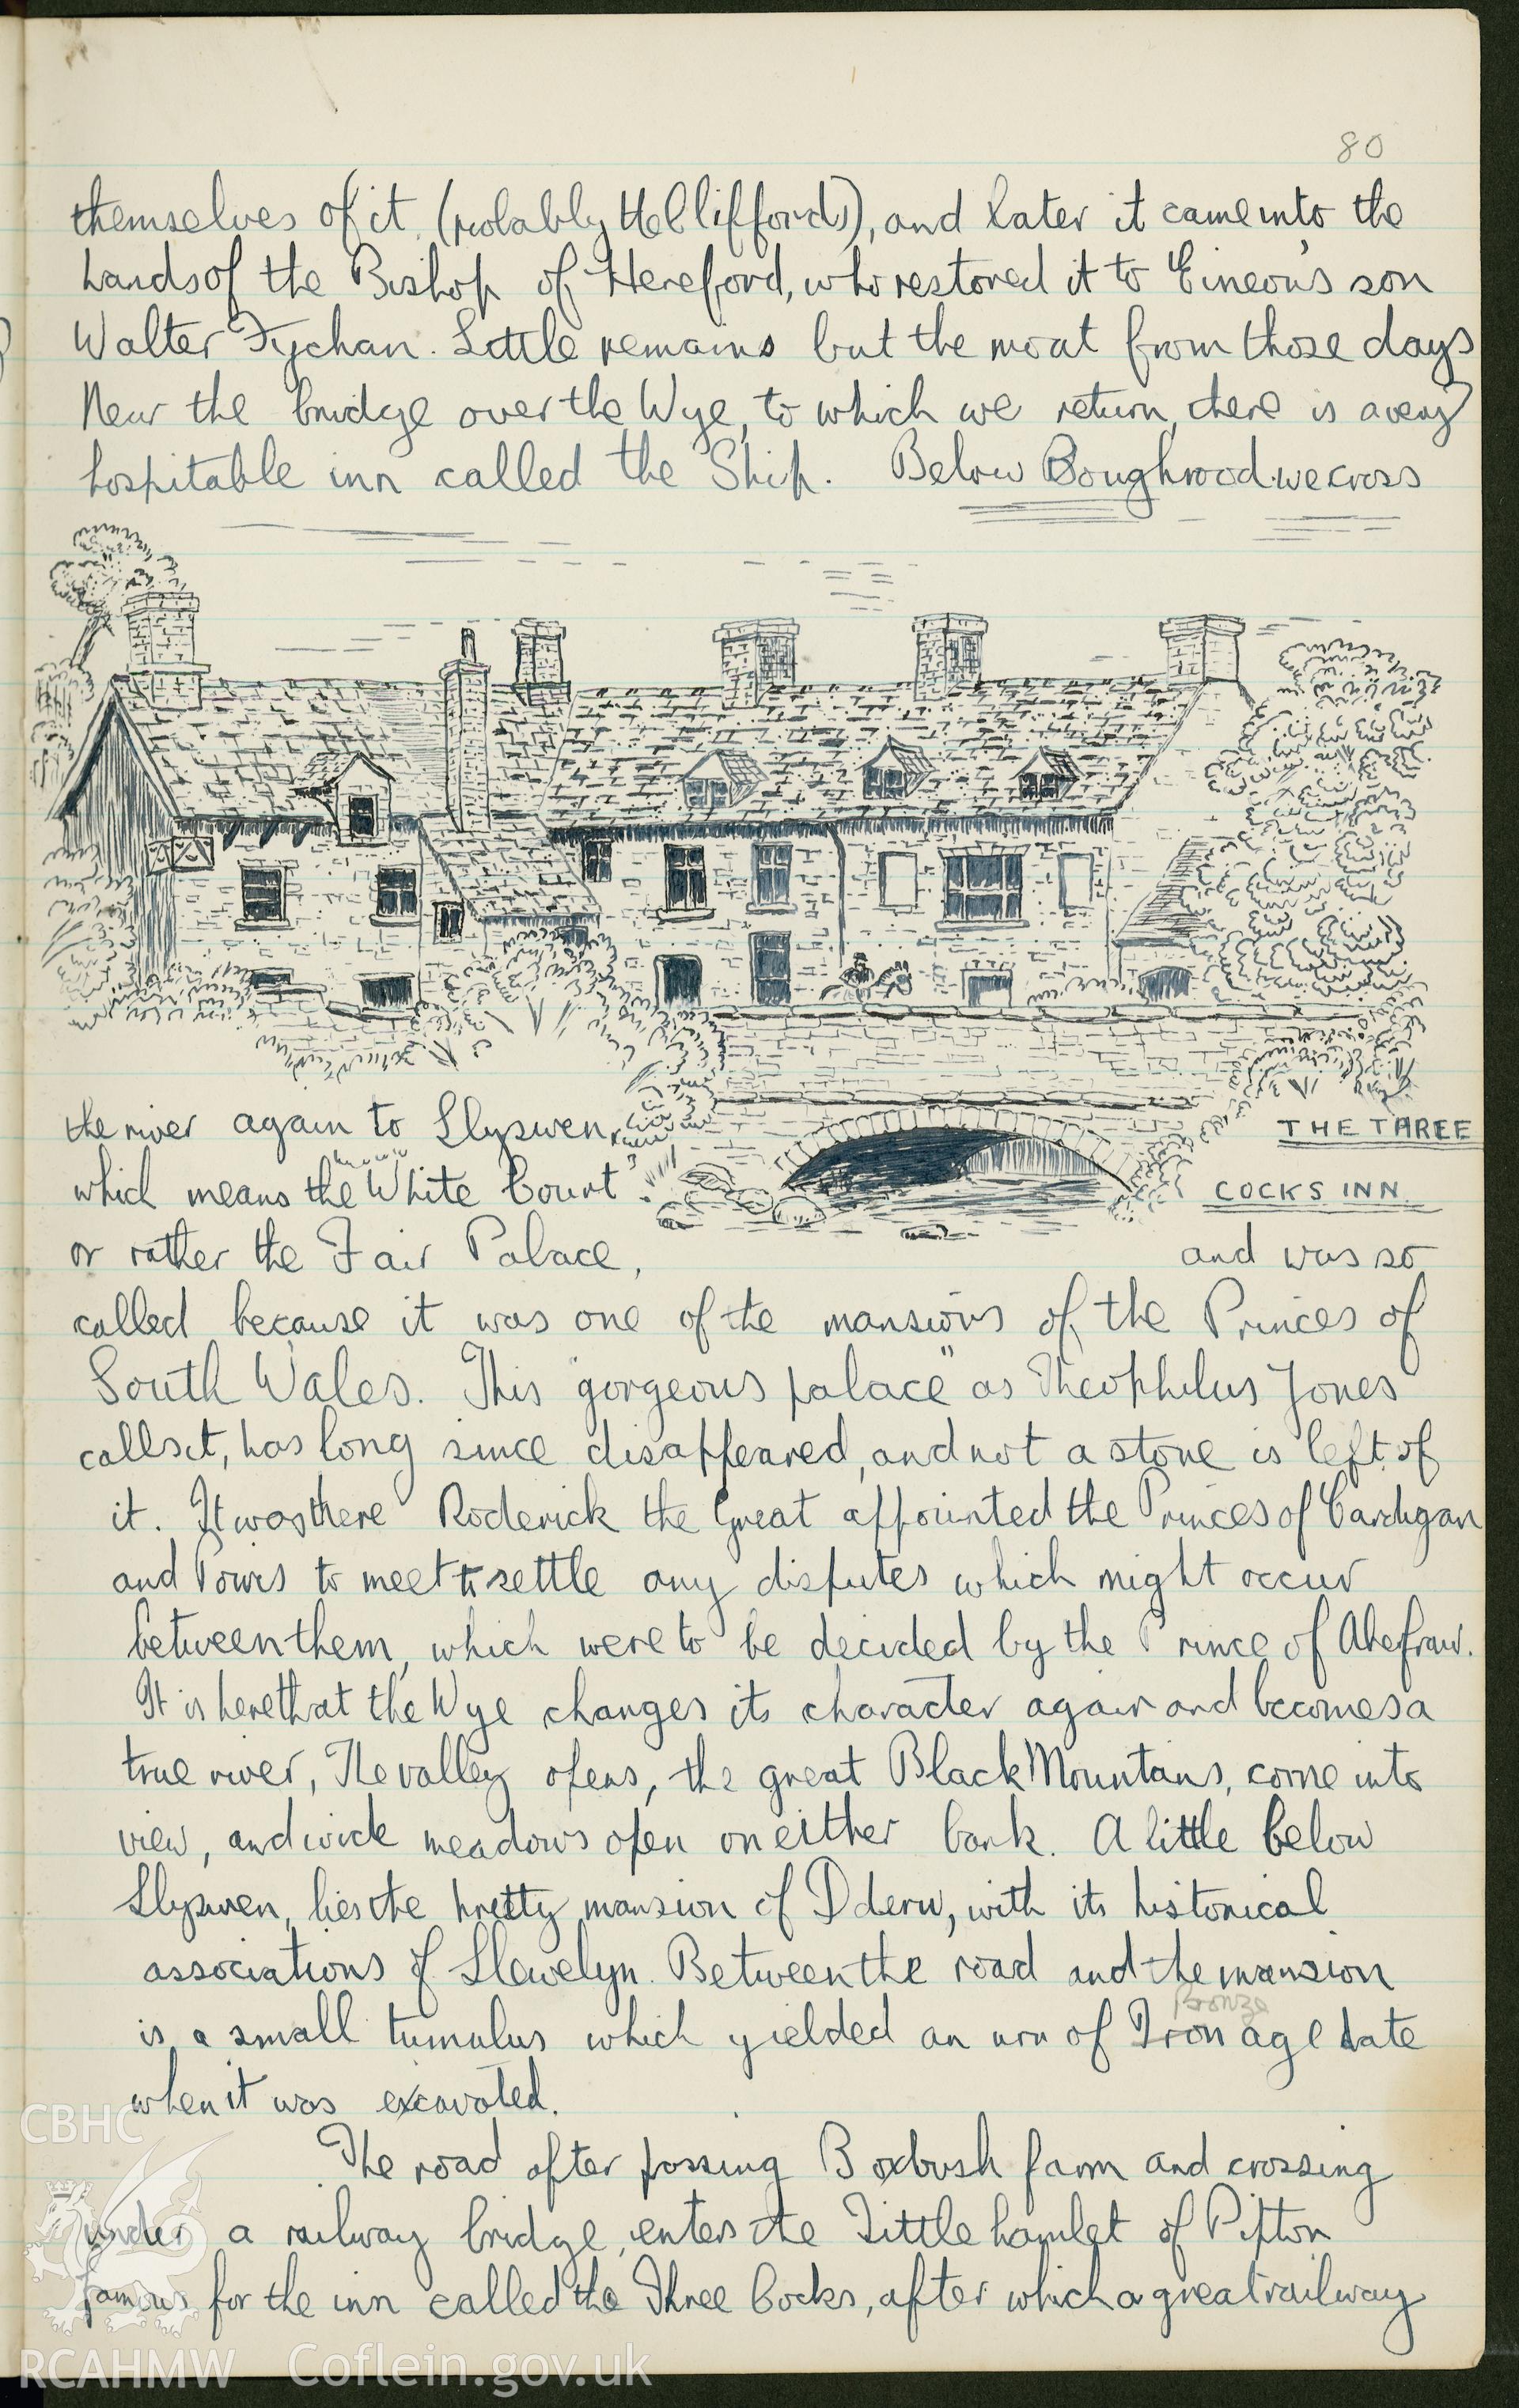 80
themselves of it (probably the Cliffords), and later it came into the
hands of the Bishop of Hereford, who restored it to Eineon's son
Walter Fychan. Little remains but the moat from those days
Near the bridge over the Wye, to which we return, there is a very
hospitable inn called the Ship. Below Boughrood we cross
the river again to Llyswen,
which means the White Court
or rather the Fair Palace,
THE THREE
COCKS INN
and was so
called because it was one of the mansions of the Princes of
South Wales. This "gorgeous palace" as Theophilus Jones
calls it, has long since disappeared, and not a stone is left of
it. It was there Roderick the Great appointed the Princes of Cardigan
and Powis to meet to settle any disputes which might occur
between them, which were to be decided by the Prince of Aberfraw.
It is here that the Wye changes its character again and becomes a
true river, The valley opens, the great Black Mountains, come into
view, and wide meadows open on either bank. A little below
Llyswen, lies the pretty mansion of Dderw, with its historical
associations of Llewelyn. Between the road and the mansion
Bronze
is a small tumulus which yielded an urn of Iron age date
when it was excavated.
The road after passing Boxbush farm and crossing
under a railway bridge, enters the little hamlet of Pipton
famous for the inn called the Three Cocks, after which a great railway
CBHC
RCAHMW Coflein.gov.uk